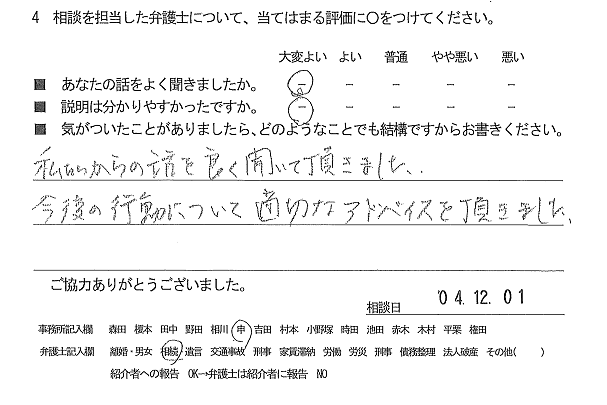 4 相談を担当した弁護士について、当てはまる評価に○をつけてください。
大変よい よい 普通 やや悪い 悪い
■ あなたの話をよく聞きましたか。 - - - - -
■ 説明は分かりやすかったですか。 - - - - -
■ 気がついたことがありましたら、どのようなことでも結構ですからお書きください。
からの話を良く聞いて頂きました。
今後の行動について適切なアドバイスを頂きました。
ご協力ありがとうございました。
相談日 '04.12.01
事務所記入欄 森田 榎本 田中 野田 相川 申 吉田 村本 小野塚 時田 池田 赤木 木村 平栗 権田
弁護士記入欄 離婚・男女 相続 遺言 交通事故 刑事 家賃滞納 労働 労災 刑事 債務整理 法人破産 その他( )
紹介者への報告 OK→弁護士は紹介者に報告 NO